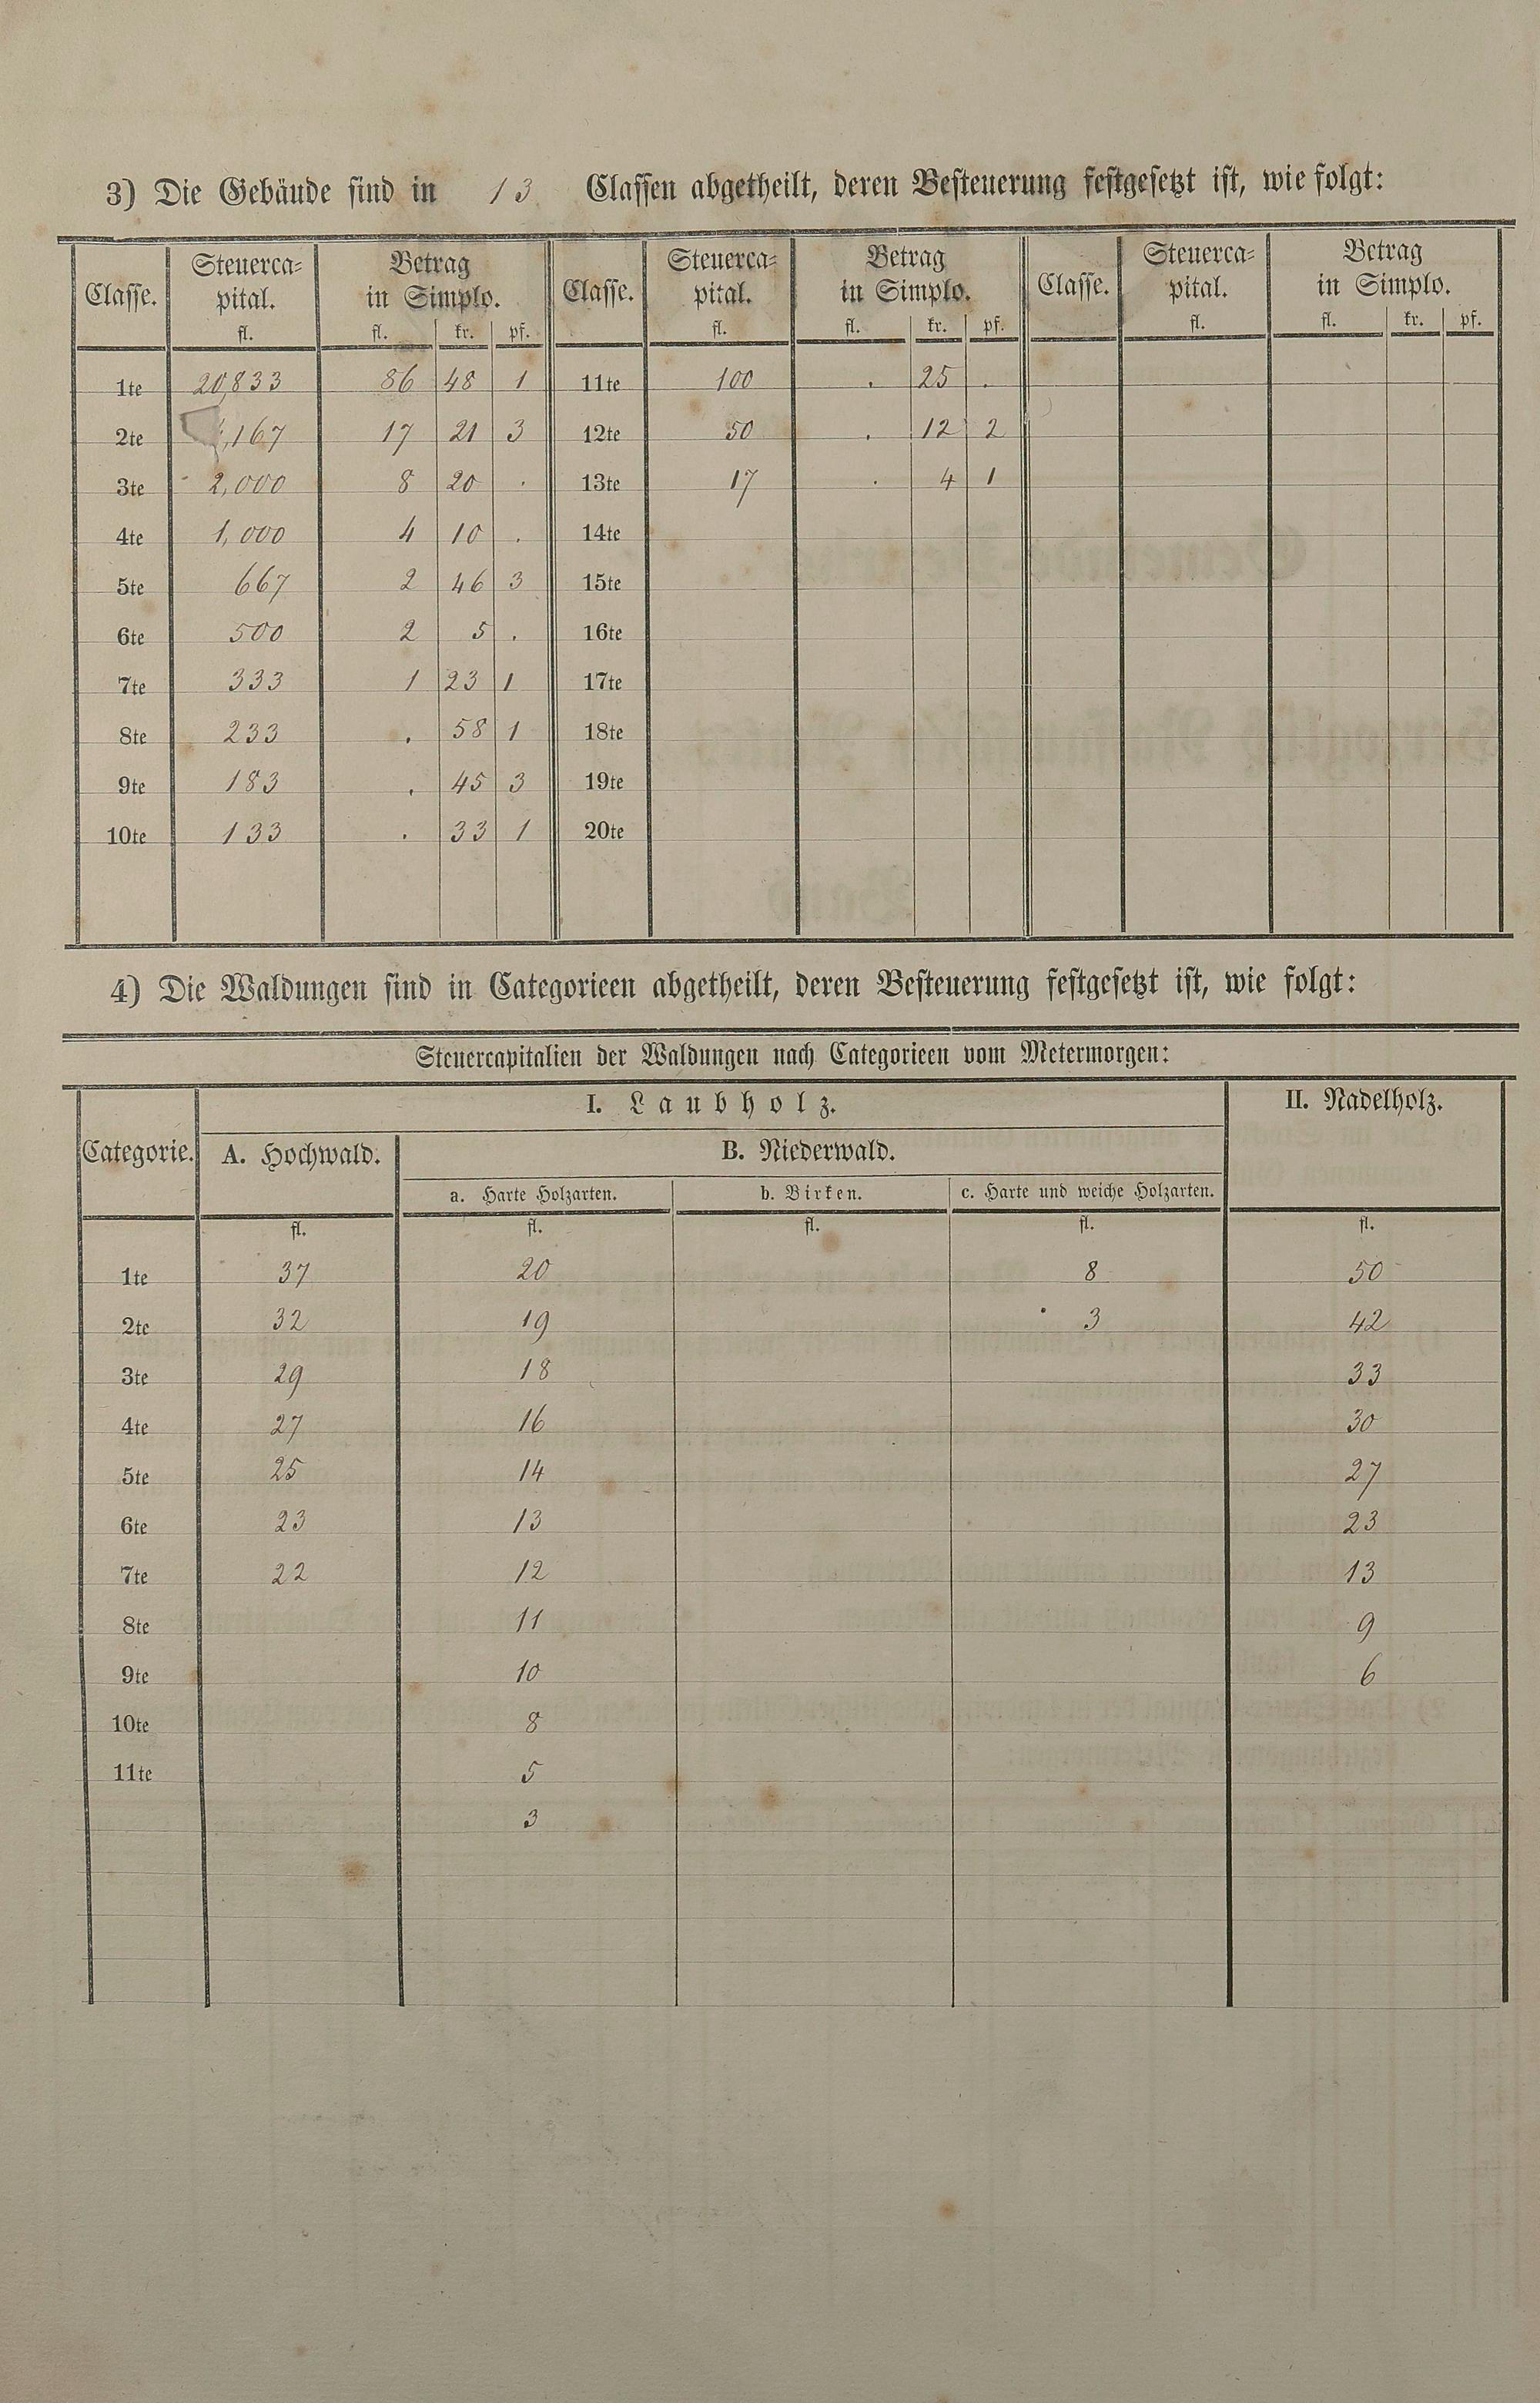 3) Die Gebäude sind in 13 Classen abgetheilt, deren Besteuerung festgesetzt ist, wie folgt:
Classe. Steuerca- Betrag Classe. Steuerca- Betrag Classe. Steuerca- Betrag
pital. in Simplo. pital. in Simplo. pital. in Simplo.
fl. fl. kr. pf. fl. fl. kr. pf. fl. fl. kr. pf.
1te 20,833 86 48 1 11te 100 . 25 .
2te ,167 17 21 3 12te 50 . 12 2
3te 2,000 8 20 . 13te 17 . 4 1
4te 1,000 4 10 . 14te
5te 667 2 46 3 15te
6te 500 2 5 . 16te
7te 333 1 23 1 17te
8te 233 . 58 1 18te
9te 183 . 45 3 19te
10te 133 . 33 1 20te
4) Die Waldungen sind in Categorieen abgetheilt, deren Besteuerung festgesetzt ist, wie folgt:
Steuercapitalien der Waldungen nach Categorieen vom Metermorgen:
I. Laubholz. II. Nadelholz.
Categorie. A. Hochwald. B. Niederwald.
a. Harte Holzarten. b. Birken. c. Harte und weiche Holzarten.
fl. fl. fl. fl. fl.
1te 37 20 8 50
2te 32 19 3 42
3te 29 18 33
4te 27 16 30
5te 25 14 27
6te 23 13 23
7te 22 12 13
8te 11 9
9te 10 6
10te 8
11te 5
3